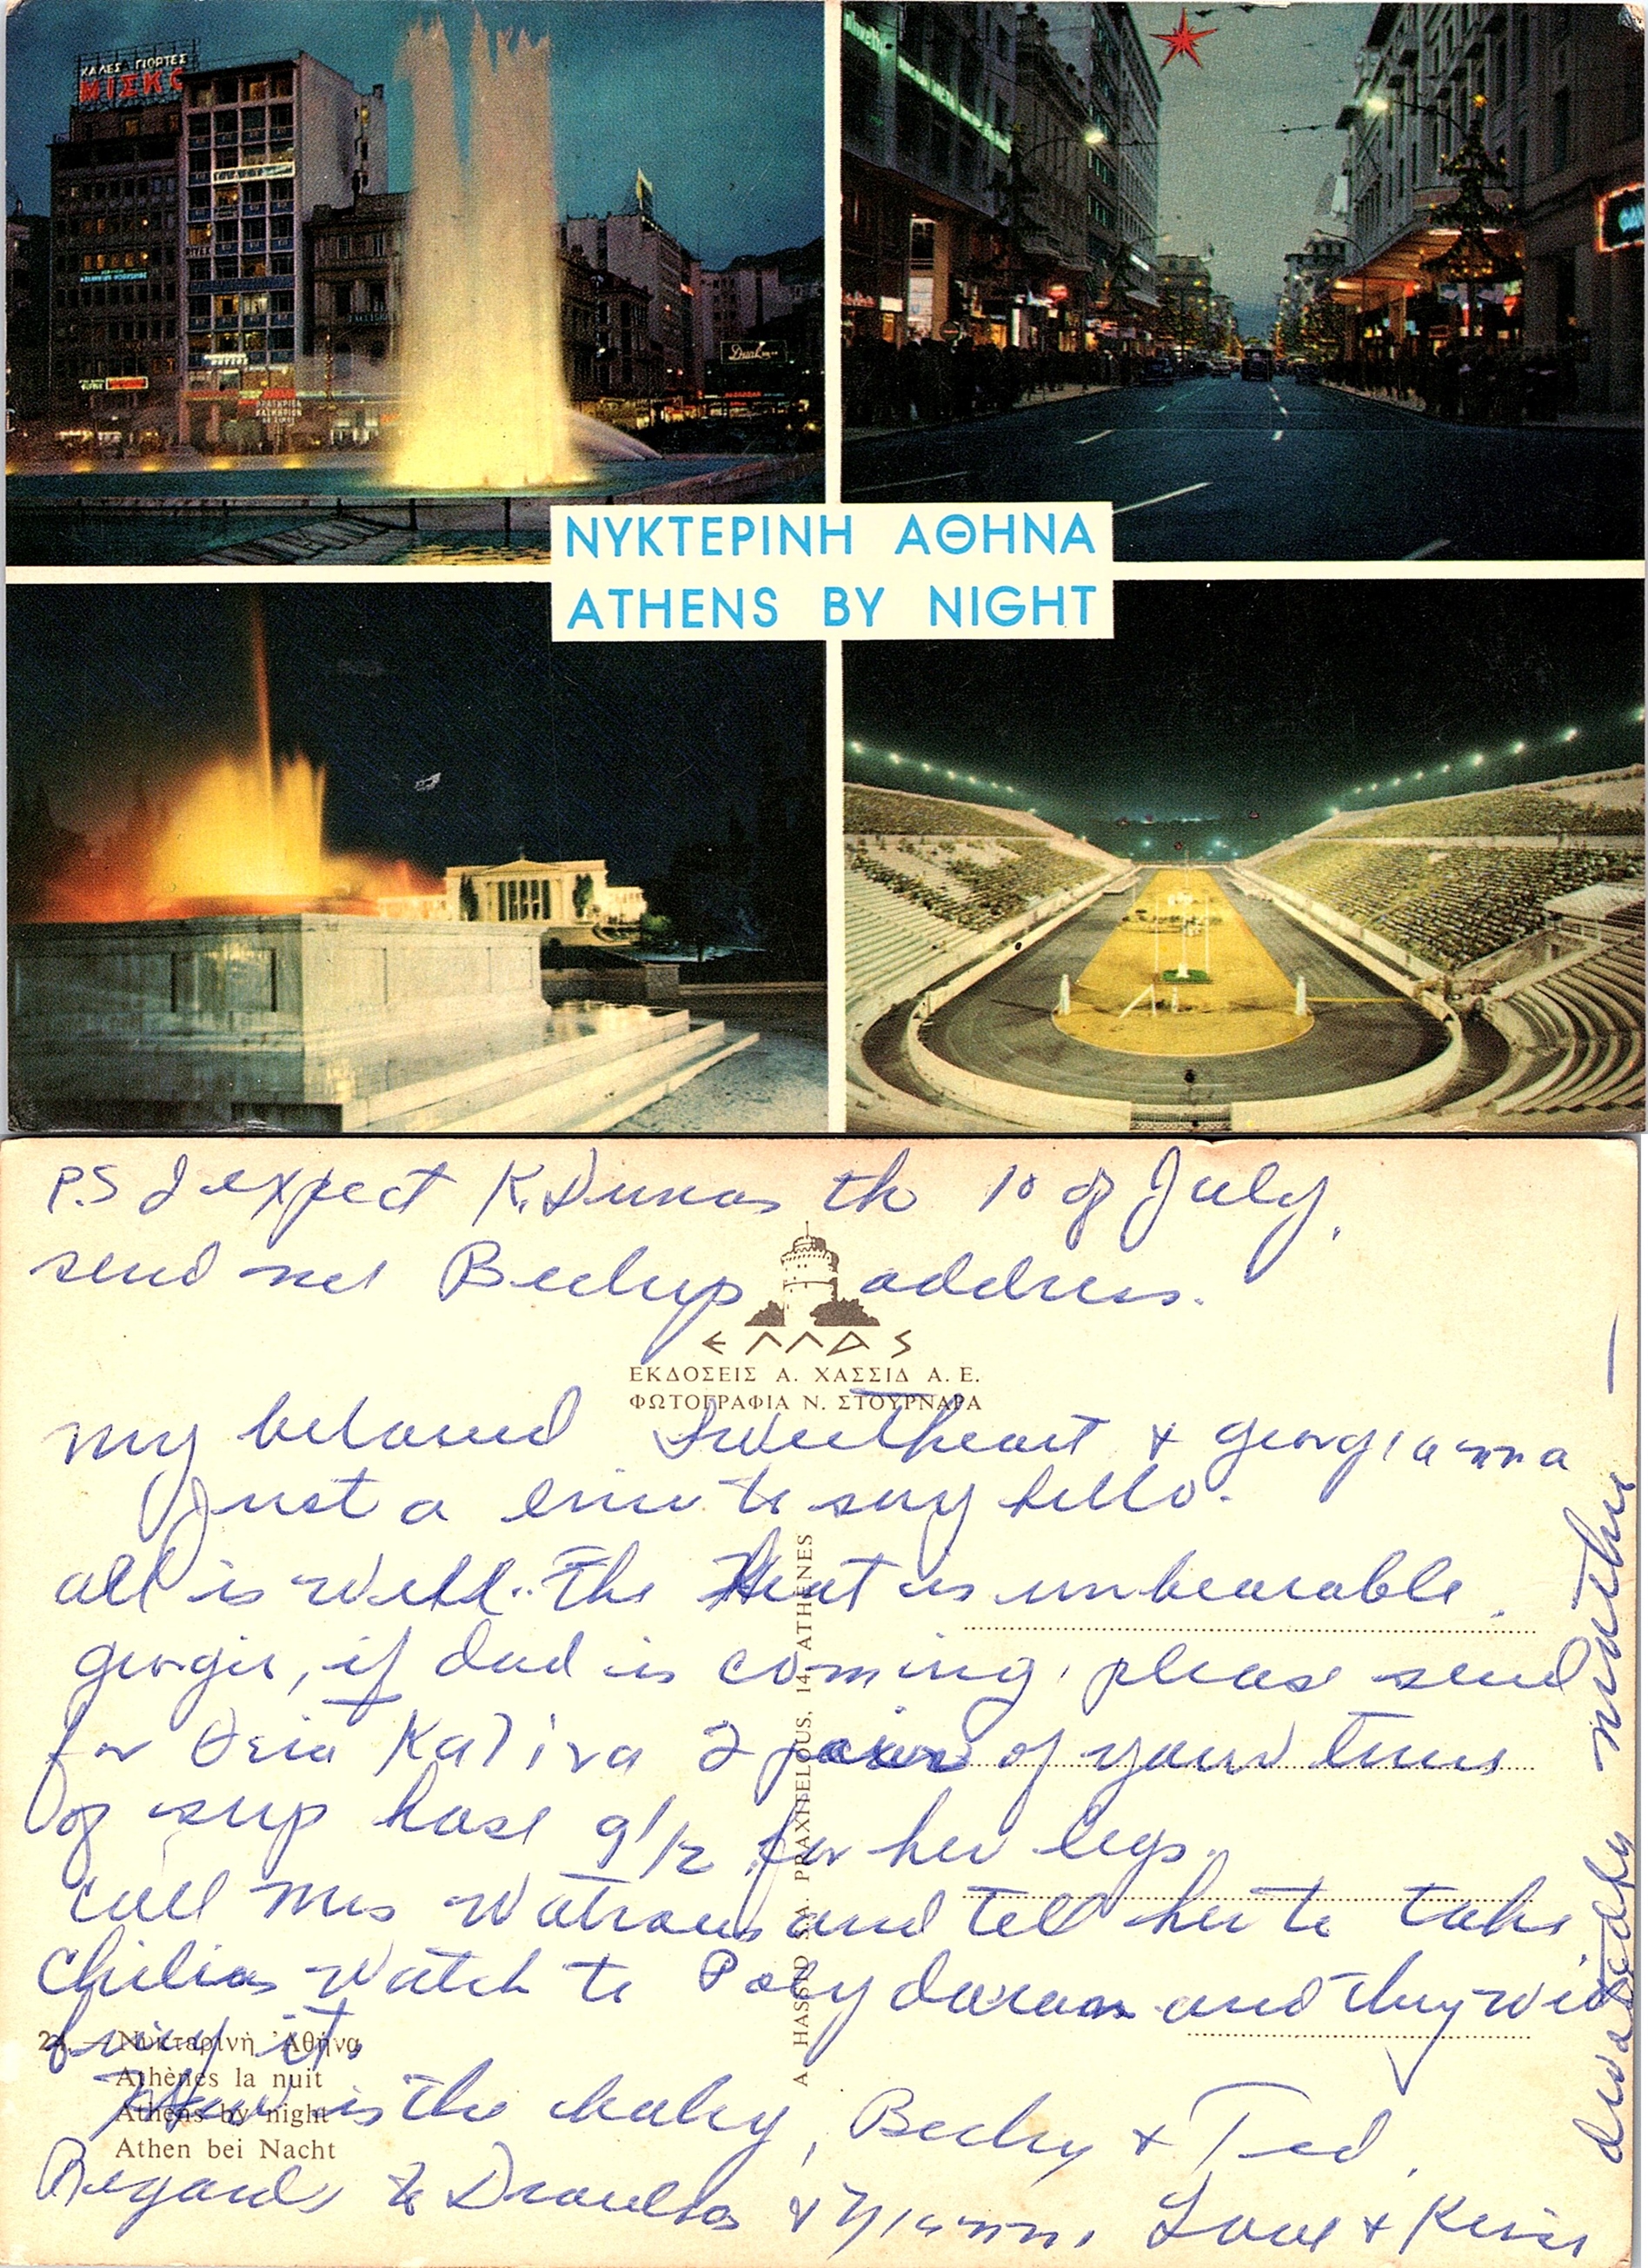 ΚΑΛΕΣ ΓΙΟΡΤΕΣ
ΜΙΣΚΟ
ΝΥΚΤΕΡΙΝΗ ΑΘΗΝΑ
ATHENS BY NIGHT
P.S I expect K. Dunas th 10 of July.
send me Beckys address.
ΕΛΛΑΣ
ΕΚΔΟΣΕΙΣ Α. ΧΑΣΣΙΔ Α.Ε.
ΦΩΤΟΓΡΑΦΙΑ Ν. ΣΤΟΥΡΝΑΡΑ
my beloved Sweetheart + georgianna
Just a line to say hello.
all is well.. The Heat is unbearable.
georgie, if dad is coming, please send
for θεια Κατινα 2 pair of your
of sup hose 9 1/2 for her legs.
call Mrs and tell her to take
watch to and they will
buy it.
How is the baby, Becky + Ted.
Regards to + Love + Kisses
mother
A. HASSID S.A. PRAXITELOUS, 14, ATHENES
— Νυκταρινὴ Ἀθήνα
Athènes la nuit
Athens by night
Athen bei Nacht